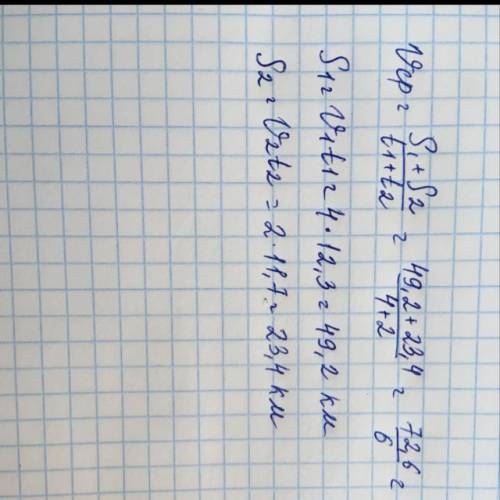 Vср = S1 + S2 / t1 + t2 = 49,2 + 23,4 / 4 + 2 = 72,6 / 6 =
S1 = V1t1 = 4 · 12,3 = 49,2 км
S2 = V2t2 = 2 · 11,7 = 23,4 км